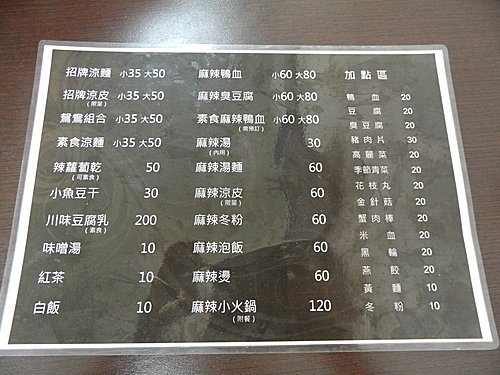 招牌涼麵 小35 大50
招牌涼皮 小35 大50
(限量)
鴛鴦組合 小35 大50
素食涼麵 小35 大50
辣蘿蔔乾 50
(可素食)
小魚豆干 30
川味豆腐乳 200
(素食)
味噌湯 10
紅茶 10
白飯 10
麻辣鴨血 小60 大80
麻辣臭豆腐 小60 大80
素食麻辣鴨血 小60 大80
(需預訂)
麻辣湯 30
(內用)
麻辣湯麵 60
麻辣涼皮 60
(限量)
麻辣冬粉 60
麻辣泡飯 60
麻辣燙 60
麻辣小火鍋 120
(附餐)
加點區
鴨血 20
豆腐 20
臭豆腐 20
豬肉片 30
高麗菜 20
季節青菜 20
花枝丸 20
金針菇 20
蟹肉棒 20
米血 20
黑輪 20
燕餃 20
黃麵 10
冬粉 10